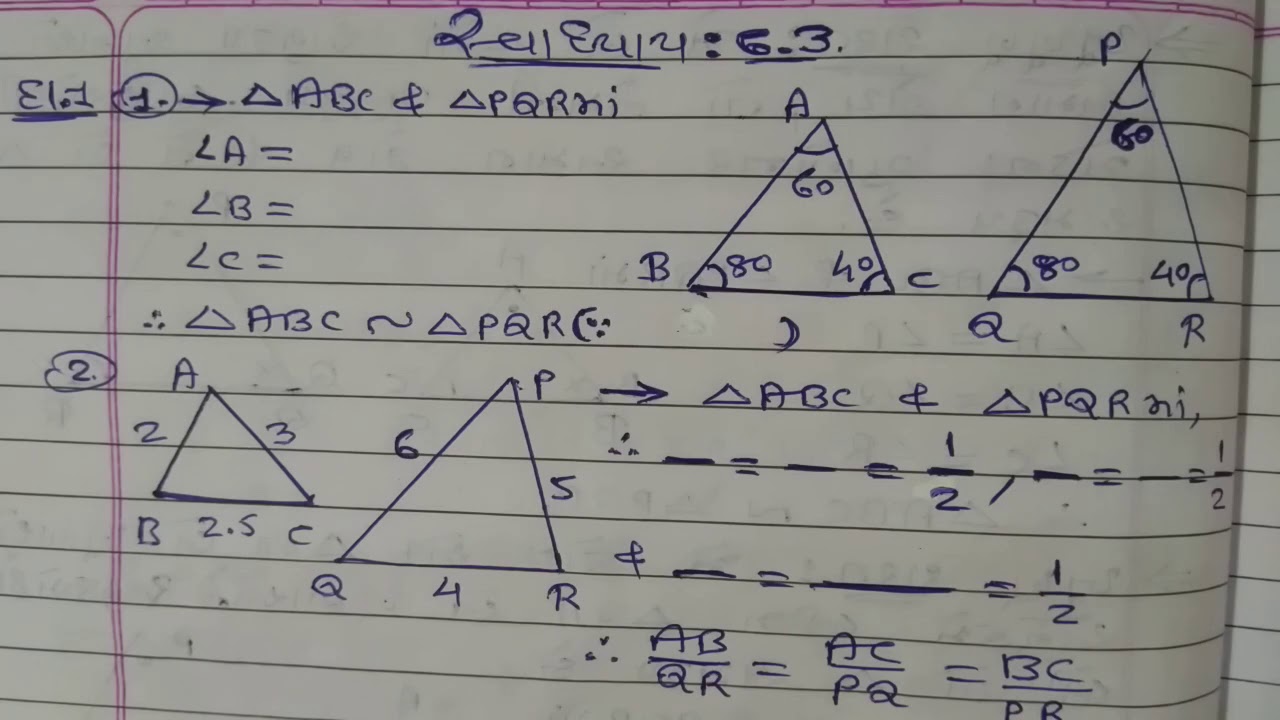 સ્વાધ્યાય : 6.3.
દા.1 1. → △ABC & △PQRમાં
∠A =
∠B =
∠C =
∴ △ABC ~ △PQR (∵ )
A
60
B 80 40 C
P
60
Q 80 40 R
2.
A
2 3
B 2.5 C
P
6 5
Q 4 R
→ △ABC & △PQRમાં,
∴ — = — = 1/2, — = — = 1/2
& — = — = 1/2
∴ AB/QR = AC/PQ = BC/PR